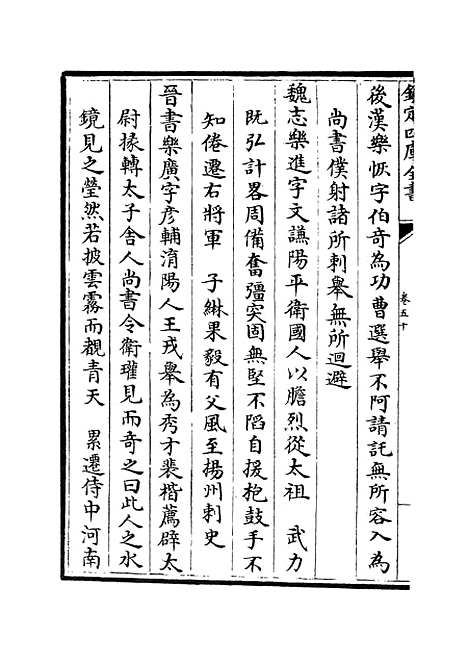 欽定四庫全書
卷五十
後漢樂恢字伯奇為功曹選舉不阿請託無所容入為
尚書僕射諸所刺舉無所迴避
魏志樂進字文謙陽平衛國人以膽烈從太祖 武力
既弘計畧周備奮彊突固無堅不䧟自援枹鼓手不
知倦遷右將軍 子綝果毅有父風至揚州刺史
晉書樂廣字彥輔淯陽人王戎舉為秀才裴楷薦辟太
尉掾轉太子舍人尚書令衛瓘見而奇之曰此人之水
鏡見之瑩然若披雲霧而覩青天 累遷侍中河南